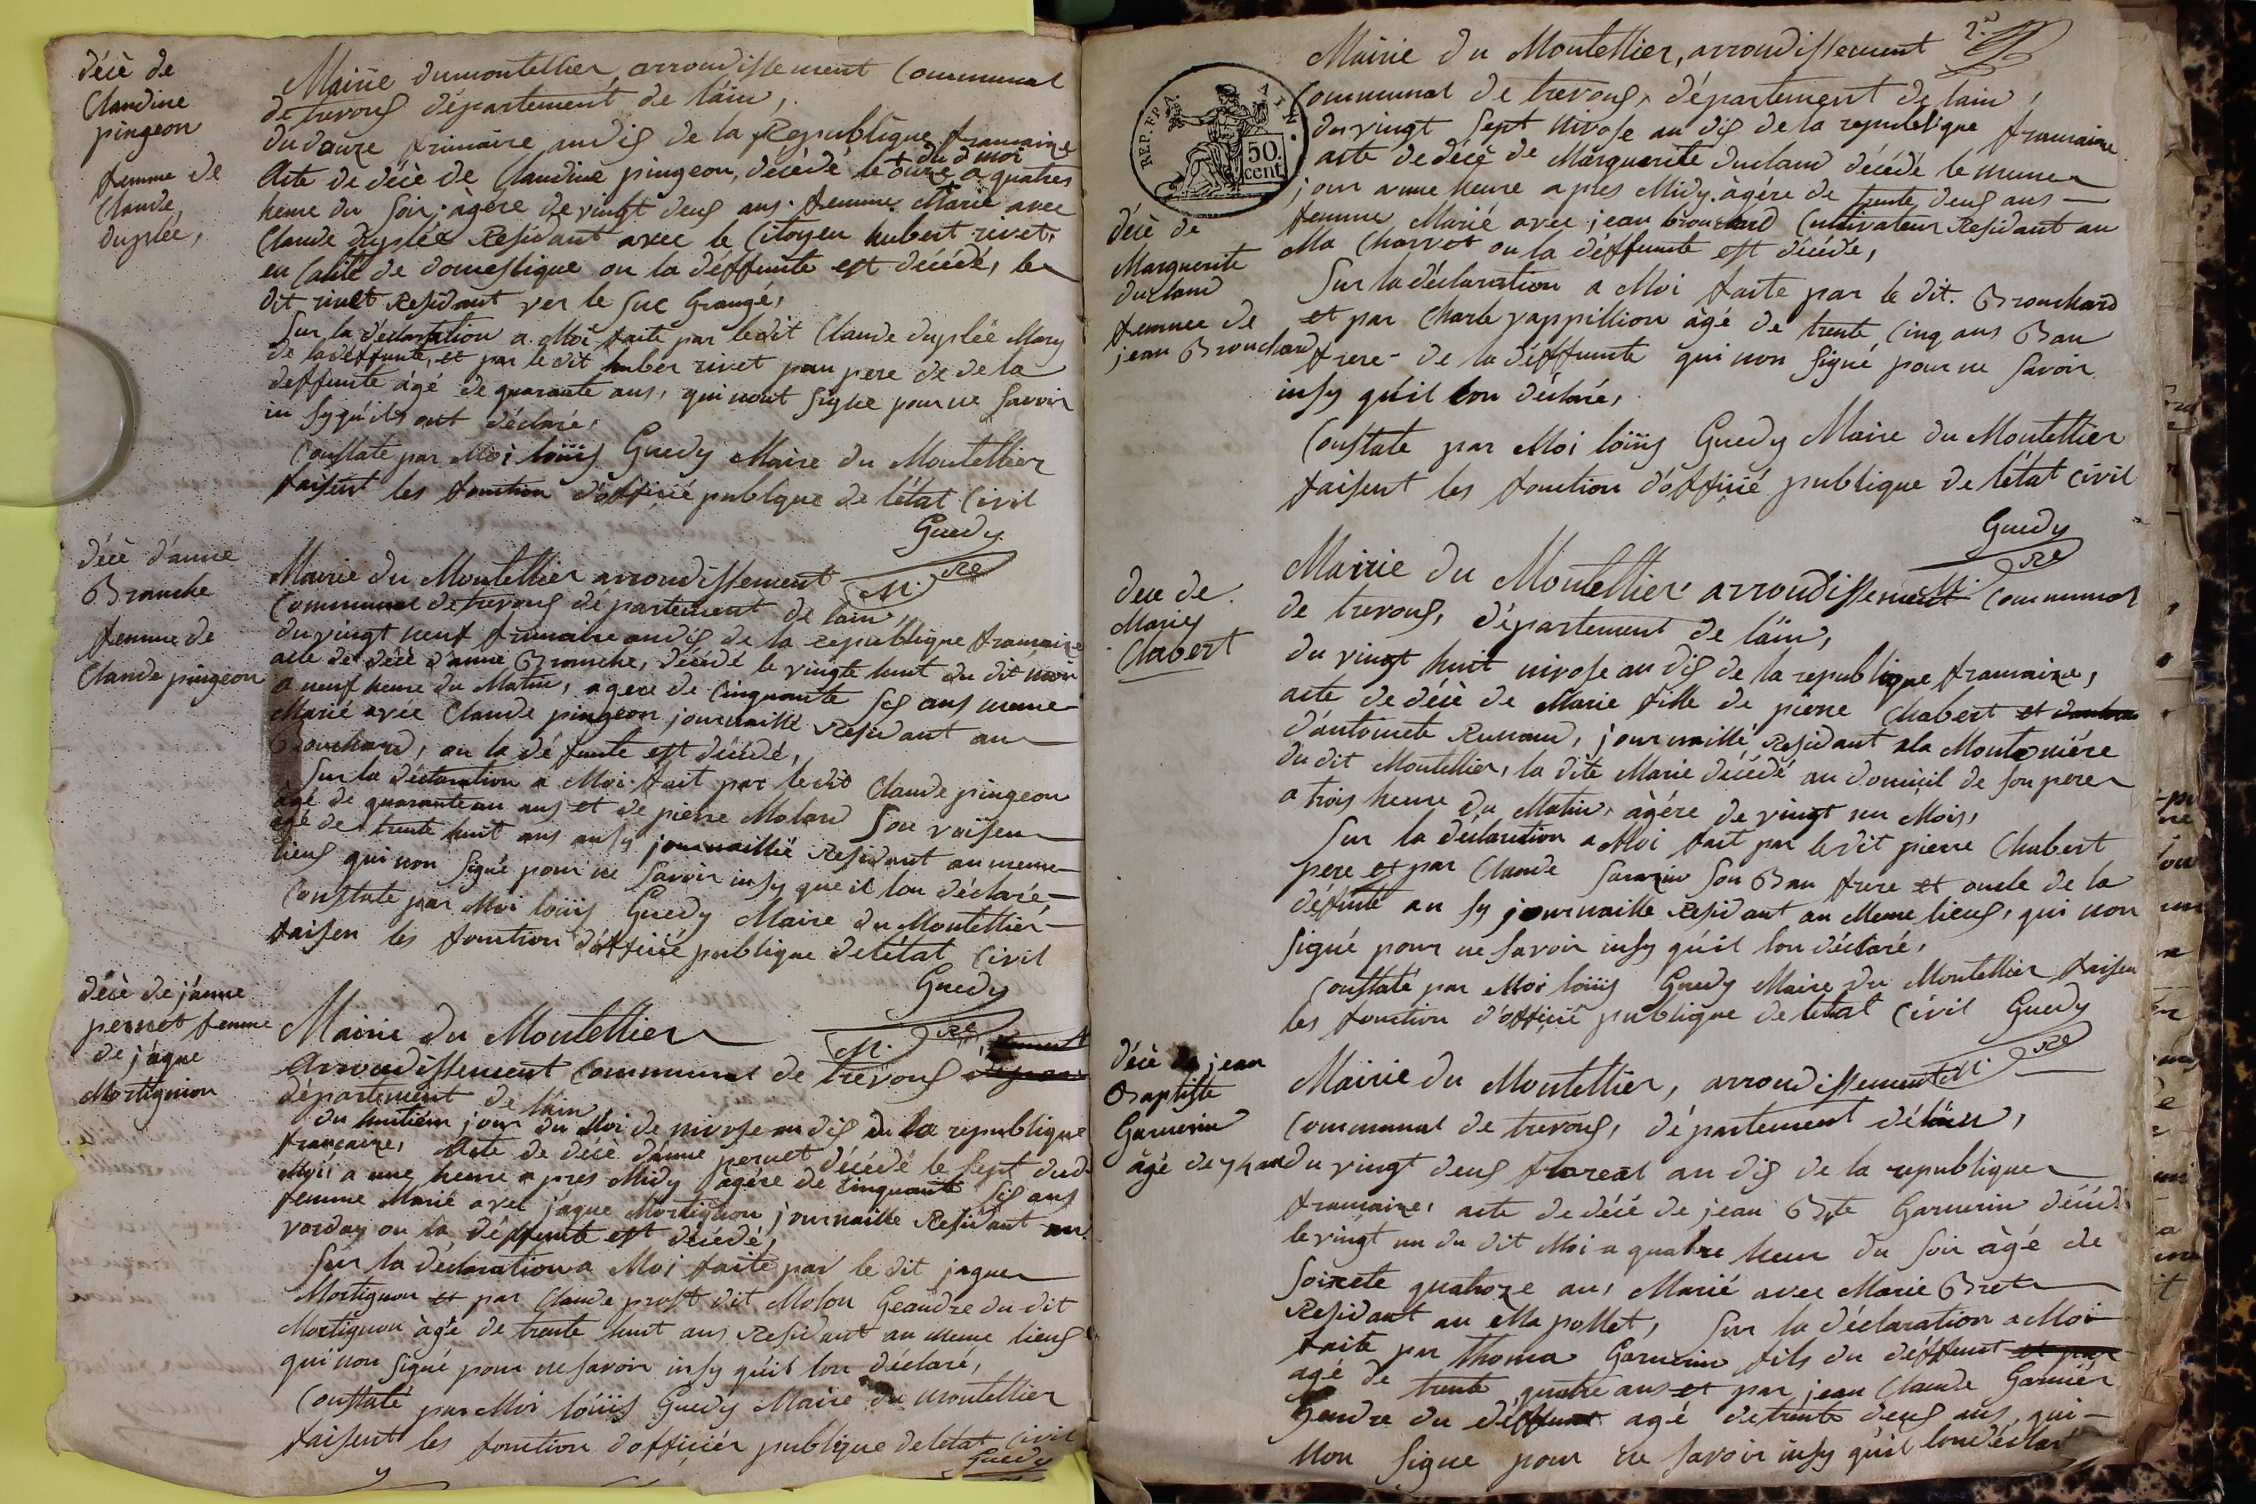 décè de
Claudine
pingeon
femme de
Claude
duplée,
Mairie dumontellier arrondissement Communal
de trevouz département de láin,
du douze frimaire an dis de la Republique framaize
Acte de décè de Claudine pingeon, décédé le onze du d moi a quatres
heure du soir, àgére de vingt deux ans. femme Marié avec
Claude duplée Residant avec le Citoyen hubert rivet,
en Calité de domestique ou la déffunte est décédé, le
dit rivet Residant ver le suc Grangé,
Sur la déclaration a Moi faite par ledit Claude duplée Mary
de la déffunte, et par le dit huber rivet pau pere de de la
deffunte ágé de quarante ans, qui nont signe pour ne savoir
in sy qu'ils ont déclaré,
Constate par Moi loüis Guedy Maire du Montellier
faisent les fonction d'officié publique de létat Civil
Guedy
M. re
décè d'anne
Branche
femme de
Claude pingeon
Mairie du Montellier arrondissement
Communal de trevouz département de lain,
du vingt neuf frimaire an dis de la republique framaize
acte de décè d'anne Branche, décédé le vingte huit du dit moi
a neuf heure du Matin, agere de Cinquante sis ans
Marié avée Claude pingeon journaillé Residant au
Bouchard, ou la défunte est décédé,
Sur la déclaration a Moi fait par ledit Claude pingeon
agé de quarante un ans et de pierre Molard son voisen
agé de trente huit ans ausy journaillié Residant au meme
lieus qui non signé pour ne savoir insy que il lon déclaré
Constate par Moi loüis Guedy Maire du Montellier
faisen les fonction d'officié publique de létat Civil
Guedy
M. re
décè de j'anne
pernet femme
de j'aque
Mortignion
Mairie du Montellier
Arrondissement Communal de trevouz
département de lain
du huitiem jour du Moi de nivose an dis de la republique
française, Acte de décè d'anne pernet décédé le sept dud
Moi, a une heure apres Midy agére de cinquante sis ans
femme Marié avec j'aque Mortignon journaille Residant au
vorday ou la déffunte est décédé,
Sur la déclaration a Moi faite par le dit jaque
Mortignon et par Claude prost dit Molon Geandre du dit
Mortignon àgé de trente huit ans Residant au meme lieus
qui non signé pour ne savoir insy qu'il lon déclaré,
Constaté par Moi loüis Guedy Maire du montellier
faisent les fonction d'officiér publique de létat civil
Guedy
2.e
REP. FRA.
AIN.
50
cent
décè de
Marguerite
durland
femme de
jean Brouchard
Mairie du Montellier, arrondissement
Communal de trevouz, département de lain,
du vingt sept nivose an dis de la republique framaize
acte de décè de Marguerite durland décédé le meme
jour a une heure apres Midy. àgére de trente deus ans
femme Marié avec jean brouchard Cultivateur Residant au
Ma Charvet ou la déffunte est décédé,
Sur la déclaration a Moi faite par lé dit. Brouchard
et par Charle pappillion àgé de trente Cinq ans Bau
frere de la déffunte qui non signé pour ne savoir
insy qu'il lon déclaré,
Constate par Moi loüis Guedy Maire du Montellier
faisent les fonction d'officié publique de létat civil
Guedy
M. re
dece de
Marie
Chabert
Mairie du Montellier arrondissement Communal
de trevouz, département de laïn,
du vingt huit nivose an dis de la republique framaize,
acte de décè de Marie fille de pierre Chabert
d'antoinete Runaud, journaillé Residant a la Montoniére
du dit Montellier, la dite Marie décédé au domicil de son pere
a trois heure du Matin, àgére de vingt un Mois,
Sur la déclaration a Moi fait par le dit pierre Chabert
pere et par Claude Sarazin son Bau frere et oncle de la
défunte au sy journaille Residant au Meme lieus, qui non
signé pour ne savoir insy qu'il lon déclaré,
Constaté par Moi loüis Guedy Maire du Montellier faisen
les fonction d'officié publique de létat Civil Guedy
M. re
décè de jean
Baptiste
Garnerin
àgé de 74 an
Mairie du Montellier, arrondissement
Communal de trevouz, département de laïn,
du vingt deus floreal an dis de la republique
framaize, acte de décé de jean Bte Garnerin décédé
le vingt un du dit Moi a quatre heur du soir àgé de
soixcete quatoze ans, Marié avec Marie Bret
Residant au Ma pollet, Sur la déclaration a Moi
faite par thoma Garnerin fils du déffunt et par
agé de trente quatre ans et par jean Claude Garnier
Gendre du déffunt agé de trente deus ans qui
Non signe pour ne savoir insy qu'il lon déclaré